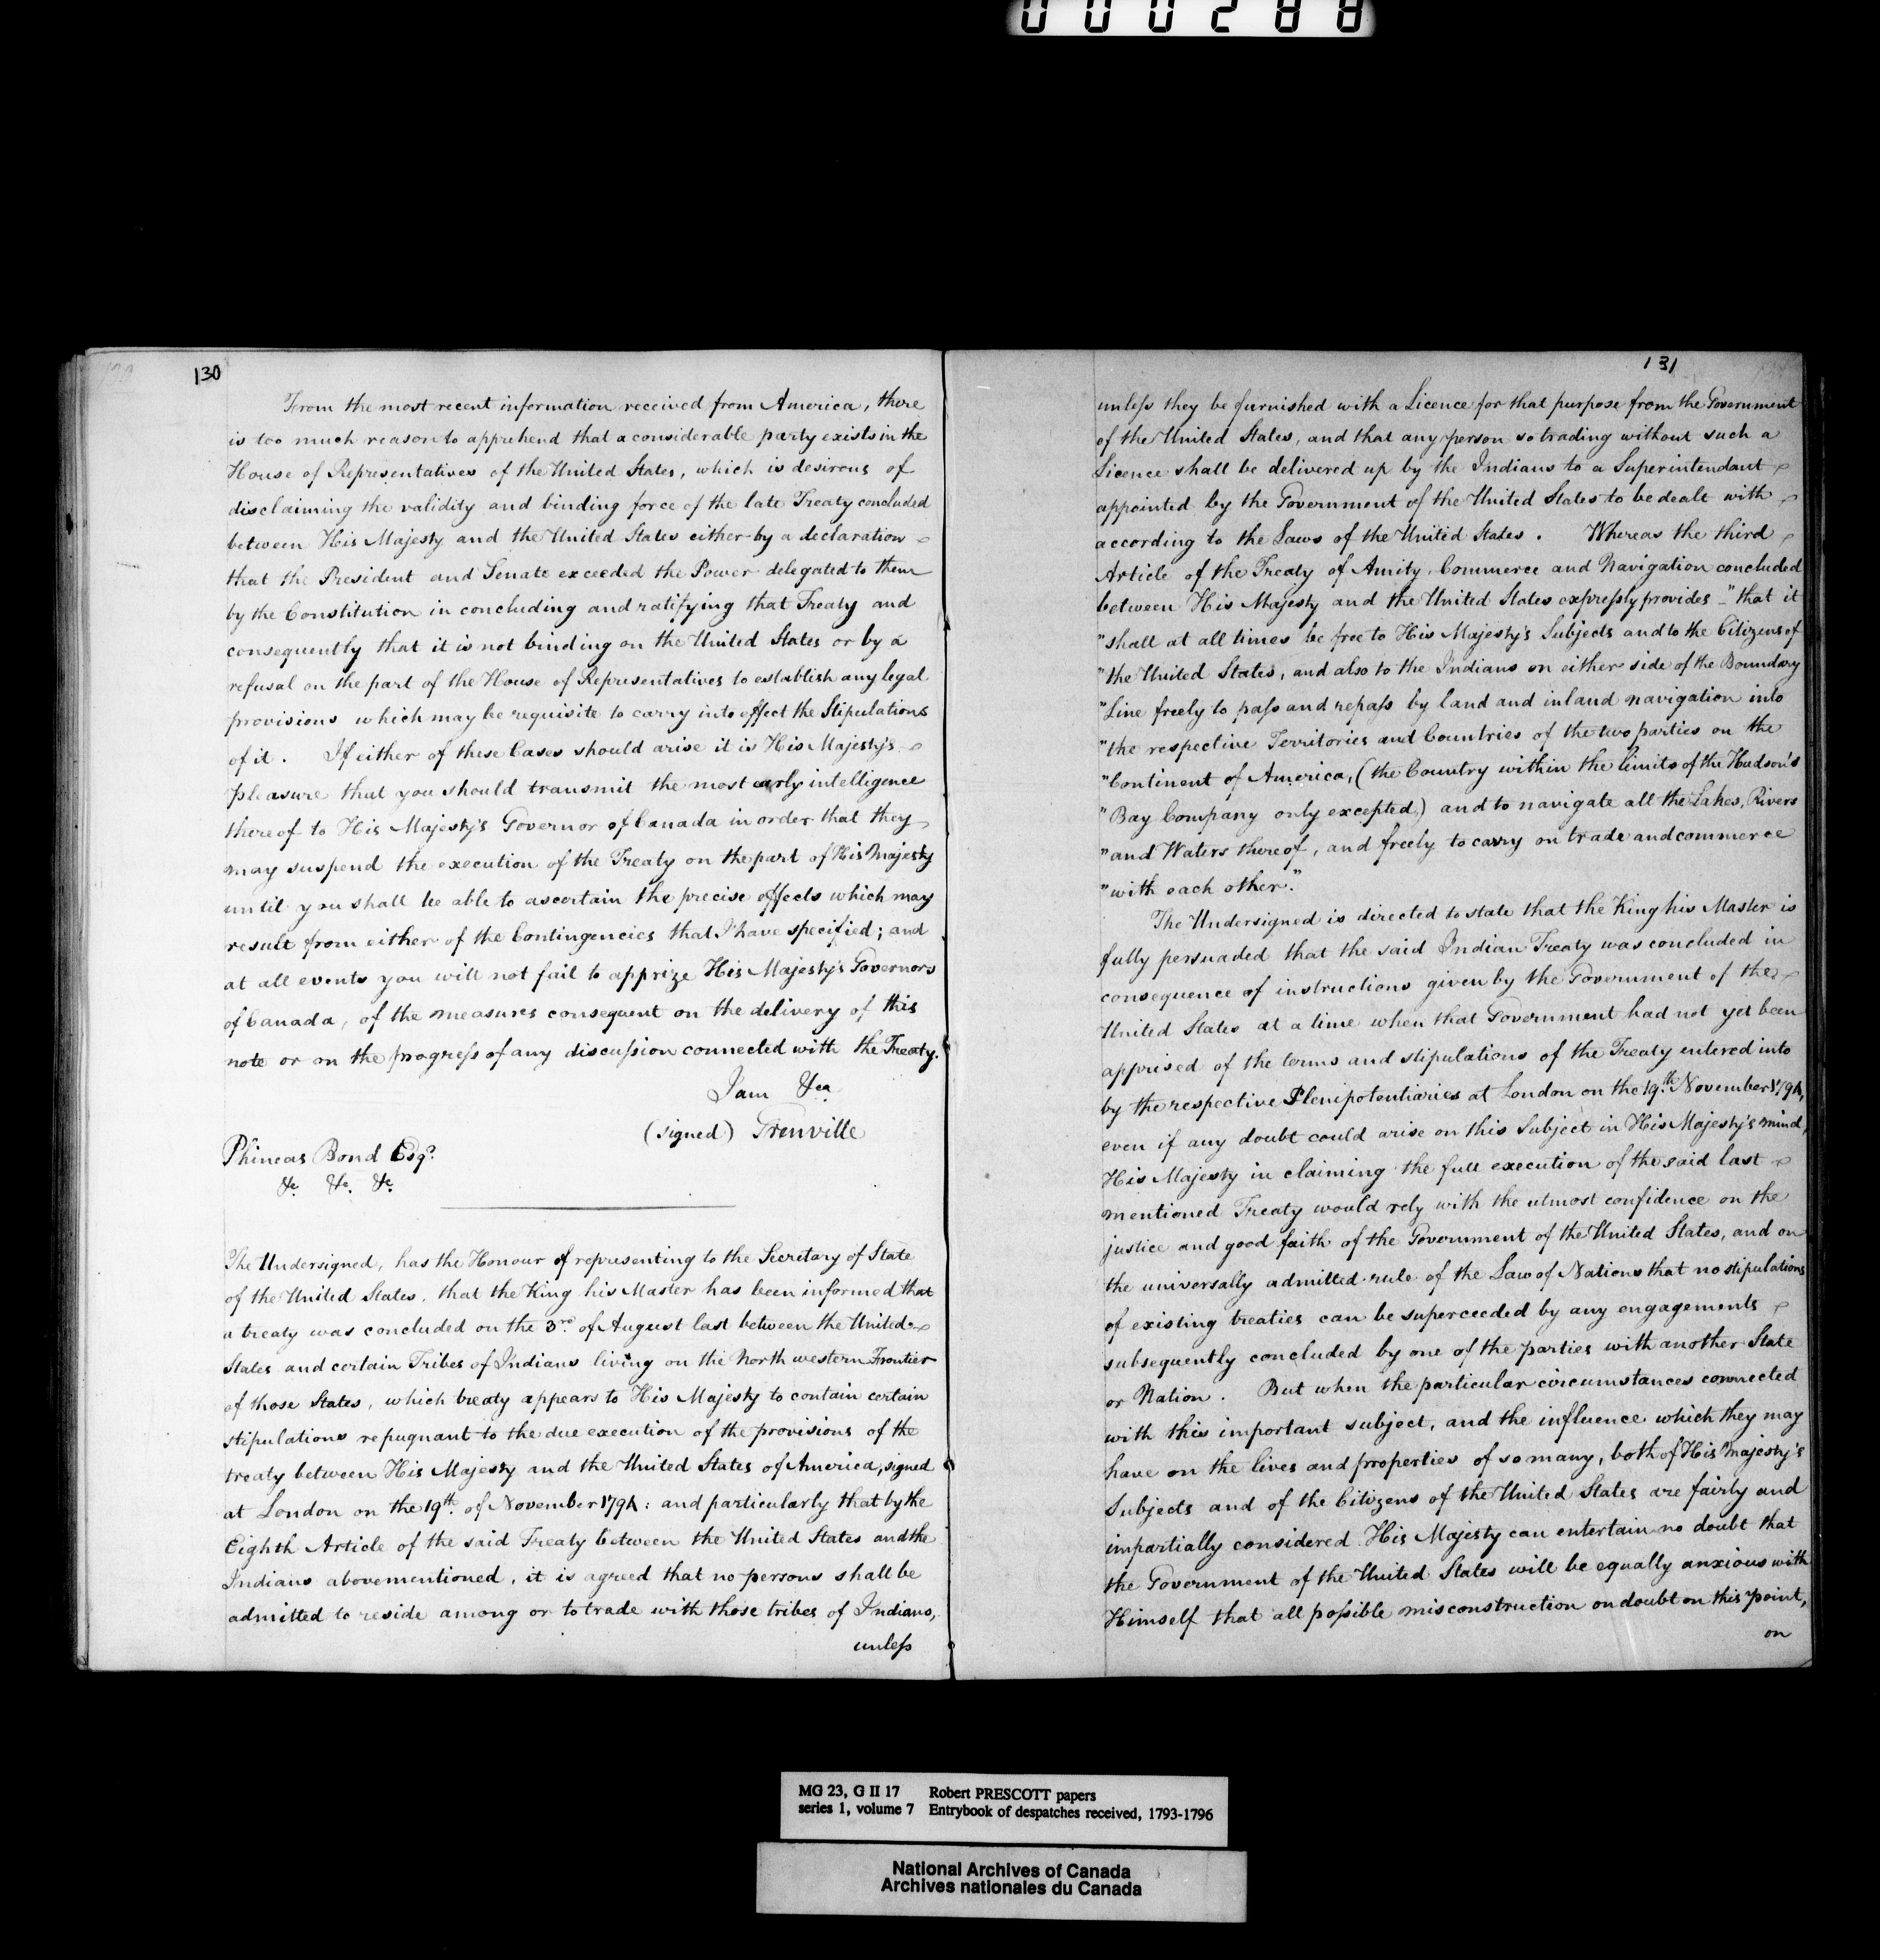 000288
130
From the most recent information received from America, there
is too much reason to apprehend that a considerable party exists in the
House of Representatives of the United States, which is desirous of
disclaiming the validity and binding force of the late Treaty concluded
between His Majesty and the United States either by a declaration
that the President and Senate exceeded the Power delegated to them
by the Constitution in concluding and ratifying that Treaty and
consequently that it is not binding on the United States or by a
refusal on the part of the House of Representatives to establish any legal
provisions which may be requisite to carry into effect the Stipulations
of it. If either of these Cases should arise it is His Majesty's
pleasure that you should transmit the most early intelligence
thereof to His Majesty's Governor of Canada in order that they
may suspend the execution of the Treaty on the part of His Majesty
until you shall be able to ascertain the precise effects which may
result from either of the Contingencies that I have specified; and
at all events you will not fail to apprize His Majesty's Governors
of Canada, of the measures consequent on the delivery of this
note or on the progress of any discussion connected with the Treaty.
I am &ca
(signed) Grenville
Phineas Bond Esqr.
&c. &c. &c.
The Undersigned, has the Honour of representing to the Secretary of State
of the United States, that the King his Master has been informed that
a treaty was concluded on the 3rd of August last between the United
States and certain Tribes of Indians living on the North western Frontier
of those States, which treaty appears to His Majesty to contain certain
stipulations repugnant to the due execution of the provisions of the
treaty between His Majesty and the United States of America, signed
at London on the 19th. of November 1794: and particularly that by the
Eighth Article of the said Treaty between the United States and the
Indians abovementioned, it is agreed that no persons shall be
admitted to reside among or to trade with those tribes of Indians,
unless
131
unless they be furnished with a Licence for that purpose from the Government
of the United States, and that any person so trading without such a
Licence shall be delivered up by the Indians to a Superintendant
appointed by the Government of the United States to be dealt with
according to the Laws of the United States. Whereas the third
Article of the Treaty of Amity, Commerce and Navigation concluded
between His Majesty and the United States expressly provides - "that it
"shall at all times be free to His Majesty's Subjects and to the Citizens of
"the United States, and also to the Indians on either side of the Boundary
"Line freely to pass and repass by land and inland navigation into
"the respective Territories and Countries of the two parties on the
"Continent of America, (the Country within the limits of the Hudson's
"Bay Company only excepted,) and to navigate all the Lakes, Rivers
"and Waters thereof, and freely to carry on trade and commerce
"with each other."
The Undersigned is directed to state that the King his Master is
fully persuaded that the said Indian Treaty was concluded in
consequence of instructions given by the Government of the
United States at a time when that Government had not yet been
apprised of the terms and stipulations of the Treaty entered into
by the respective Plenipotentiaries at London on the 19.th November 1794,
even if any doubt could arise on this Subject in His Majesty's mind,
His Majesty in claiming the full execution of the said last
mentioned Treaty would rely with the utmost confidence on the
justice and good faith of the Government of the United States, and on
the universally admitted rule of the Law of Nations that no stipulations
of existing treaties can be superceeded by any engagements
subsequently concluded by one of the parties with another State
or Nation. But when the particular circumstances connected
with this important subject, and the influence which they may
have on the lives and properties of so many, both of His Majesty's
Subjects and of the Citizens of the United States are fairly and
impartially considered His Majesty can entertain no doubt that
the Government of the United States will be equally anxious with
Himself that all possible misconstruction on doubt on this point,
on
MG 23, G II 17 Robert PRESCOTT papers
series 1, volume 7 Entrybook of despatches received, 1793-1796
National Archives of Canada
Archives nationales du Canada